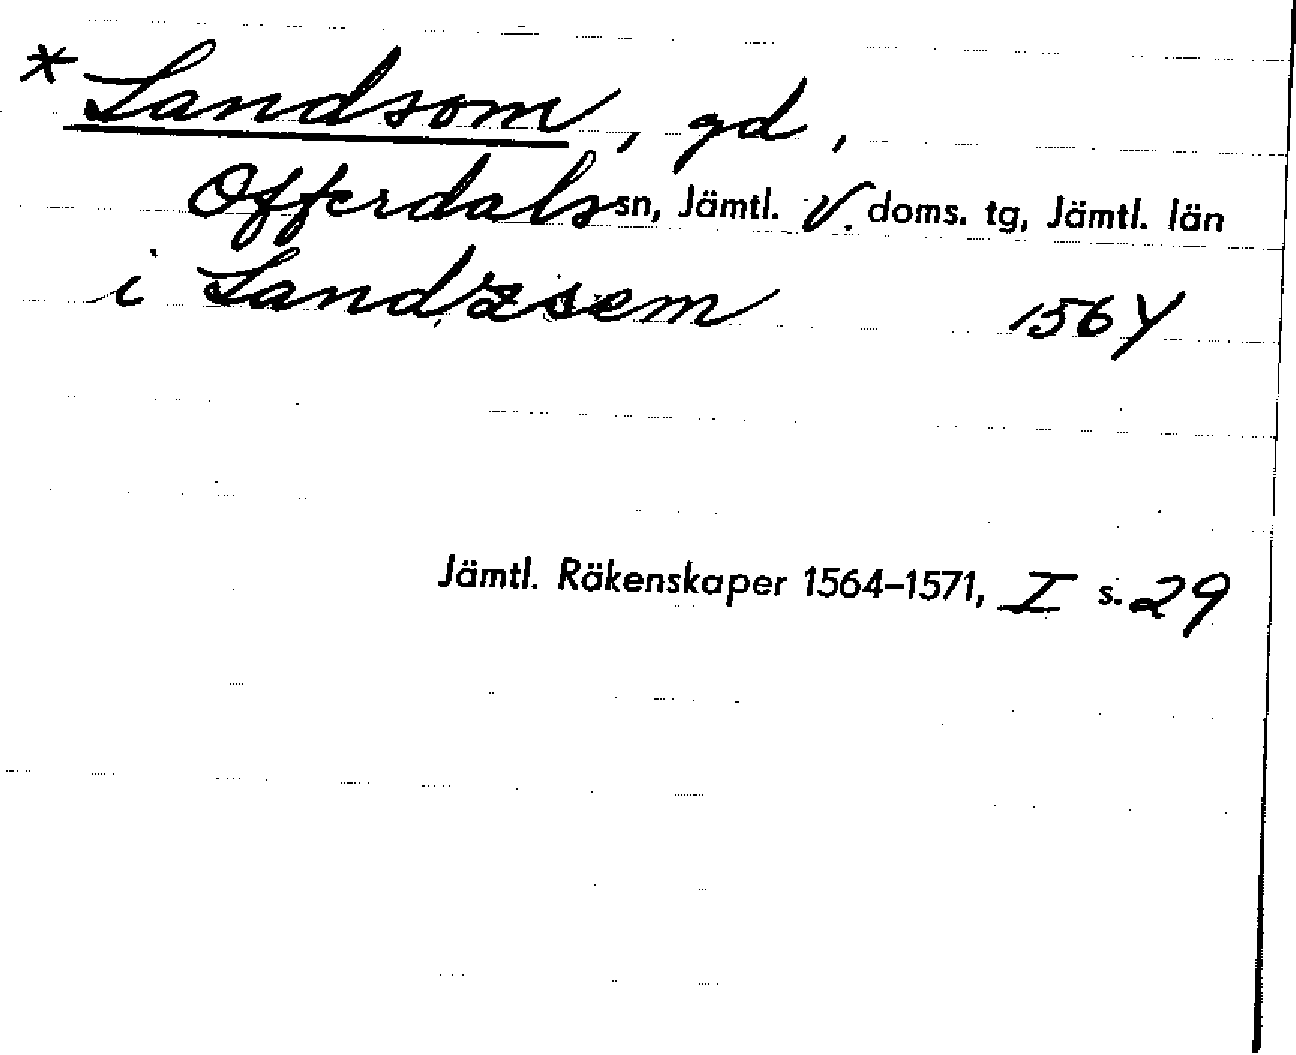 * Landsom, gd,
Offerdals sn, Jämtl. V. doms. tg, Jämtl. län
i Landzsem 1564
Jämtl. Räkenskaper 1564–1571, I s. 29